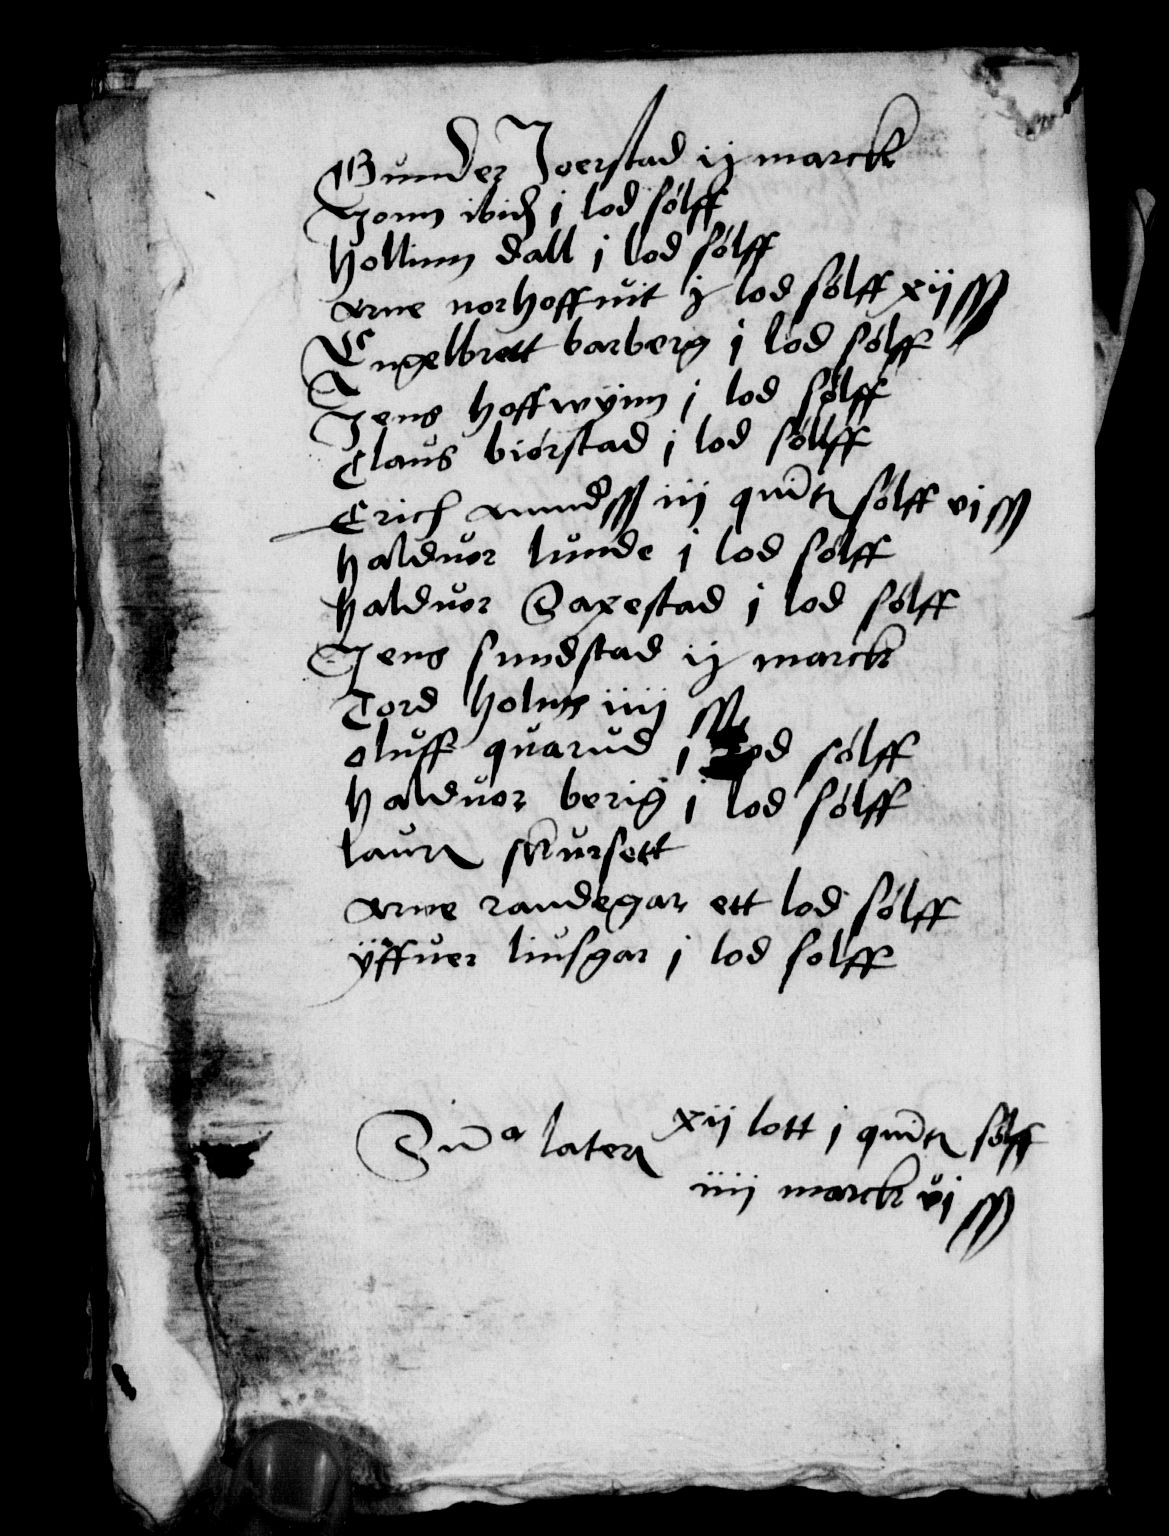 Gunder Joerstad ij marck
Jonn ibid j lod sølff
hollinn dall j lod sølff
arne norhoffuit lod sølff xij ß
Engelbrett barberg j lod sølff
Jens hoffwÿnn j lod sølff
Claus biørstad j lod sølff
Erich iij quint sølff vi ß
haldvor lunde j lod sølff
haldvor Saxestad j lod sølff
Jens sundstad ij marck
Tord holms iiij ß
oluff quarud j lod sølff
haldvor berig j lod sølff
laur skursett
arne randegar ett lod sølff
ÿffuer liusgar j lod sølff
Suma lateris xij lott j quint sølff
iiij marck vi ß